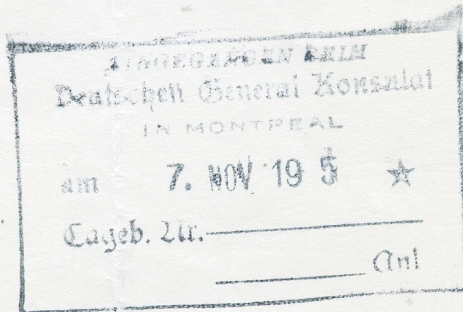 EINGEGANGEN BEIM
Deutschen General Konsulat
IN MONTREAL
am 7. NOV 195 ☆
Tageb. Nr.
Anl